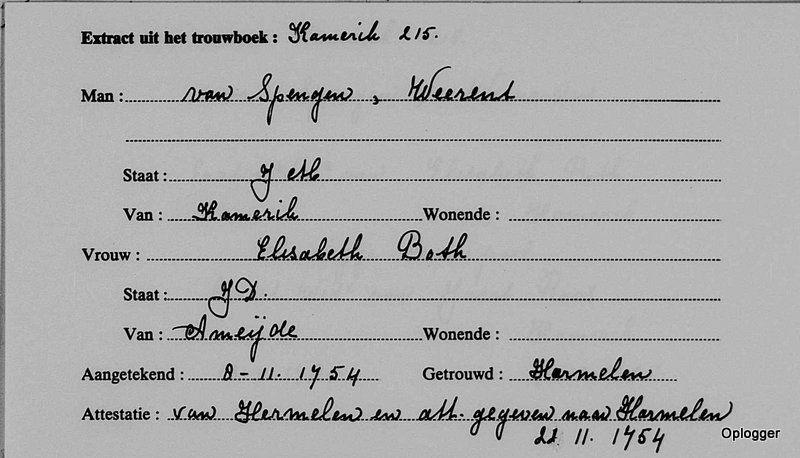 Extract uit het trouwboek : Kamerik 215.
Man : van Spengen, Weerent
Staat : J M
Van : Kamerik Wonende :
Vrouw : Elisabeth Both
Staat : J D.
Van : Ameijde Wonende :
Aangetekend : 8-11. 1754 Getrouwd : Harmelen
Attestatie : van Hermelen en att. gegeven naar Harmelen
22 11. 1754
Oplogger